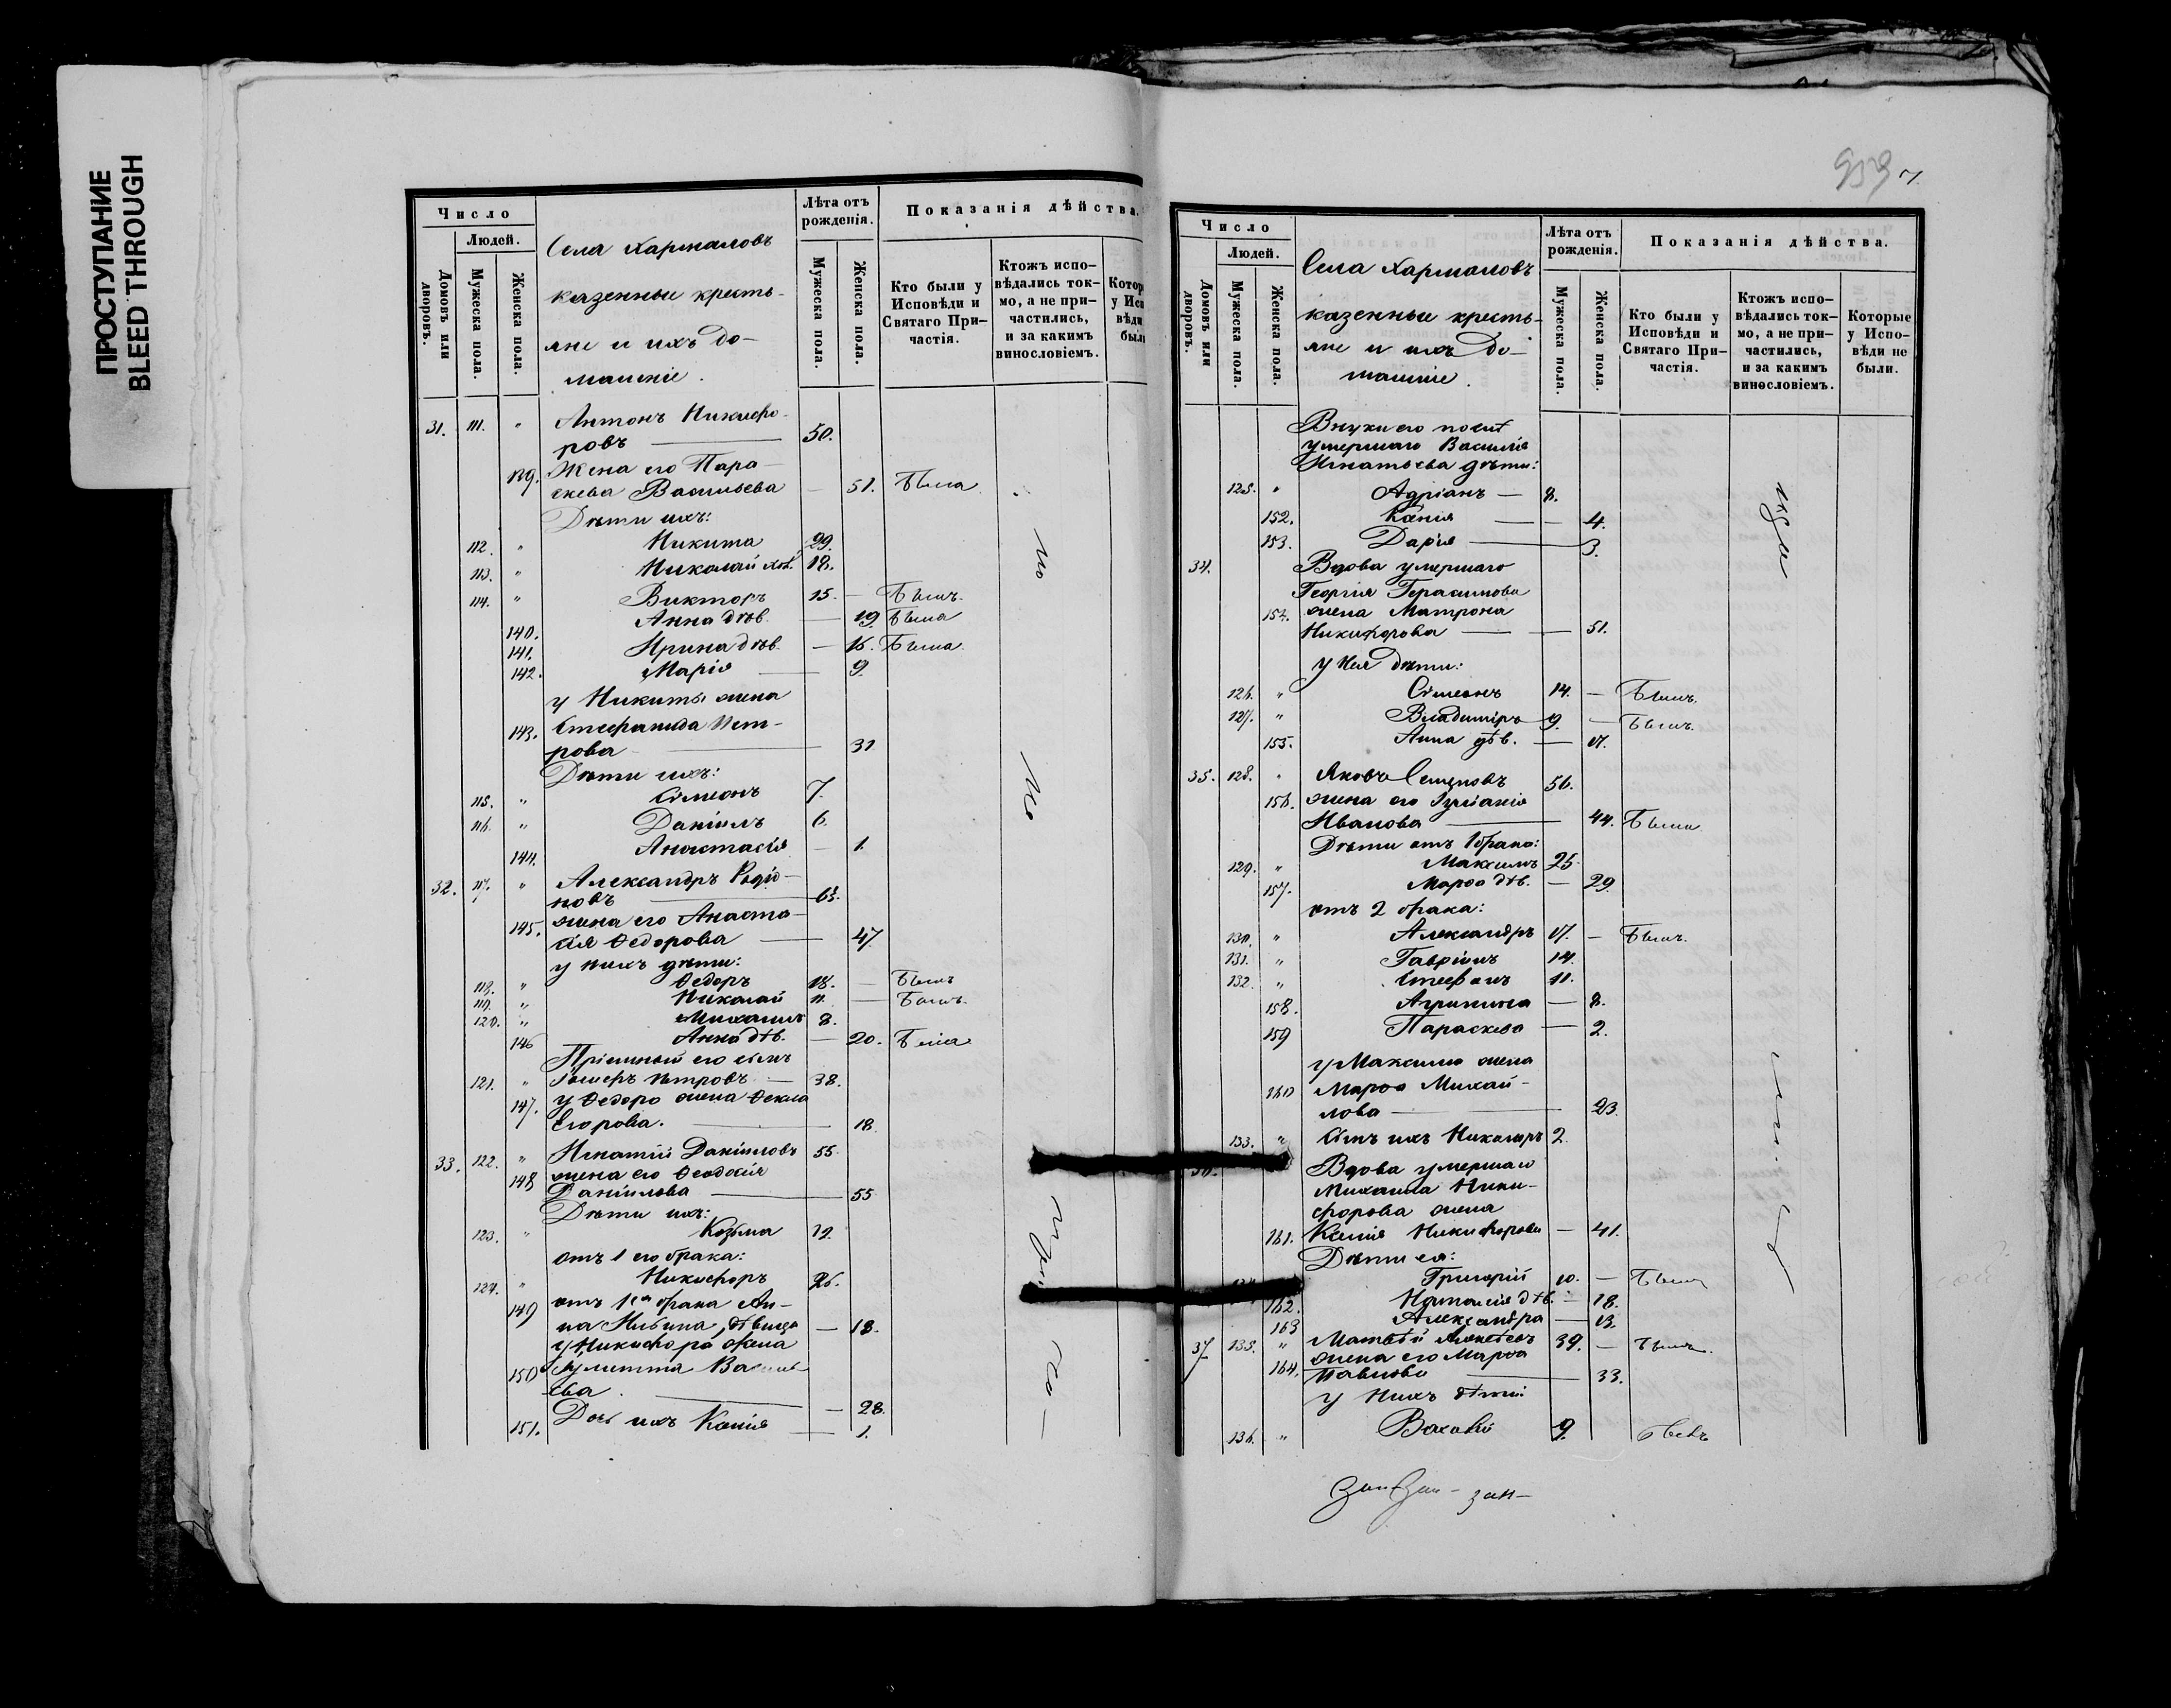 ПРОСТУПАНИЕ
BLEED THROUGH
Число
Людей.
Домовъ или дворовъ.
Мужеска пола.
Женска пола.
Села Хармаловъ
казенные кресть-
яне и ихъ до-
машніе.
Лѣта отъ рожденія.
Мужеска пола.
Женска пола.
Показанія дѣйства.
Кто были у Исповѣди и Святаго При-частія.
Ктожъ испо-вѣдались ток-мо, а не при-частились, и за какимъ винословіемъ.
31. 111. " Антонъ Никифо-
ровъ 50.
139. Жена его Пара-
скева Васильева 51. Была
Дѣти ихъ:
112. " Никита 29.
113. " Николай 18.
114. " Викторъ 15. Былъ.
140. Анна дѣв. 19. Была
141. Ирина дѣв. 16. Была
142. Марія 9.
у Никиты жена
143. Стефанида Пет-
рова 31
Дѣти ихъ:
115. " Симеонъ 7.
116. " Даніилъ 6.
144. Анастасія 1.
32. 117. " Александръ Родіо-
новъ 63.
145. жена его Анаста-
сія Ѳедорова 47
у нихъ дѣти:
118. " Ѳедоръ 18. Былъ
119. " Николай 11. Былъ.
120. " Михаилъ 8.
146 Анна дѣв. 20. Была
Пріемный его сынъ
121. " Петровъ 38.
147. у Ѳедора жена Ѳекла
Егорова. 18.
33. 122. " Игнатій Даніиловъ 55.
148 жена его Ѳеодосія
Даніилова 55
Дѣти ихъ:
123. " Козьма 12.
отъ 1 его брака:
124. " Никифоръ 26.
149 отъ 1го брака Ан-
на дѣвица 18.
у Никифора жена
150 Іулитта Василь-
ева. 28.
151. Дочь ихъ Ксенія 1.
939 7.
Число
Людей.
Домовъ или дворовъ.
Мужеска пола.
Женска пола.
Села Хармаловъ
казенные кресть-
яне и ихъ до-
машніе.
Лѣта отъ рожденія.
Мужеска пола.
Женска пола.
Показанія дѣйства.
Кто были у Исповѣди и Святаго При-частія.
Ктожъ испо-вѣдались ток-мо, а не при-частились, и за какимъ винословіемъ.
Которые у Испо-вѣди не были.
Внуки его послѣ
умершаго Василія
Игнатьева дѣти:
125. " Адріанъ 8.
152. Ксенія 4.
153. Дарія 3.
34. Вдова умершаго
Георгія Герасимова
154. жена Матрона
Никифорова 51.
у нея дѣти:
126. " Симеонъ 14. Былъ.
127. " Владиміръ 9. Былъ.
155. Анна дѣв. 17.
35. 128. " Яковъ Семеновъ 56.
156. жена его Іуліанія
Иванова 44. Была
Дѣти отъ 1 брака:
129. " Максимъ 25.
157. Марѳа дѣв. 29.
отъ 2 брака:
130. " Александръ 17. Былъ.
131. " Гавріилъ 14.
132. " Стефанъ 11.
158. Агрипина 8.
159 Параскева 2.
у Максима жена
160 Марѳа Михай-
лова 23.
133. " Сынъ ихъ Никаноръ 2.
36. Вдова умершаго
Михаила Ники-
форова жена
161. Ксенія Никифорова 41.
Дѣти ея:
Григорій 10. Былъ
162. Наталія дѣв. 18.
163 Александра 13.
37 135. " Матвѣй Алексѣевъ 39. Былъ.
164. жена его Марѳа
Павлова 33.
У нихъ дѣти
136. " Василій 9. Былъ